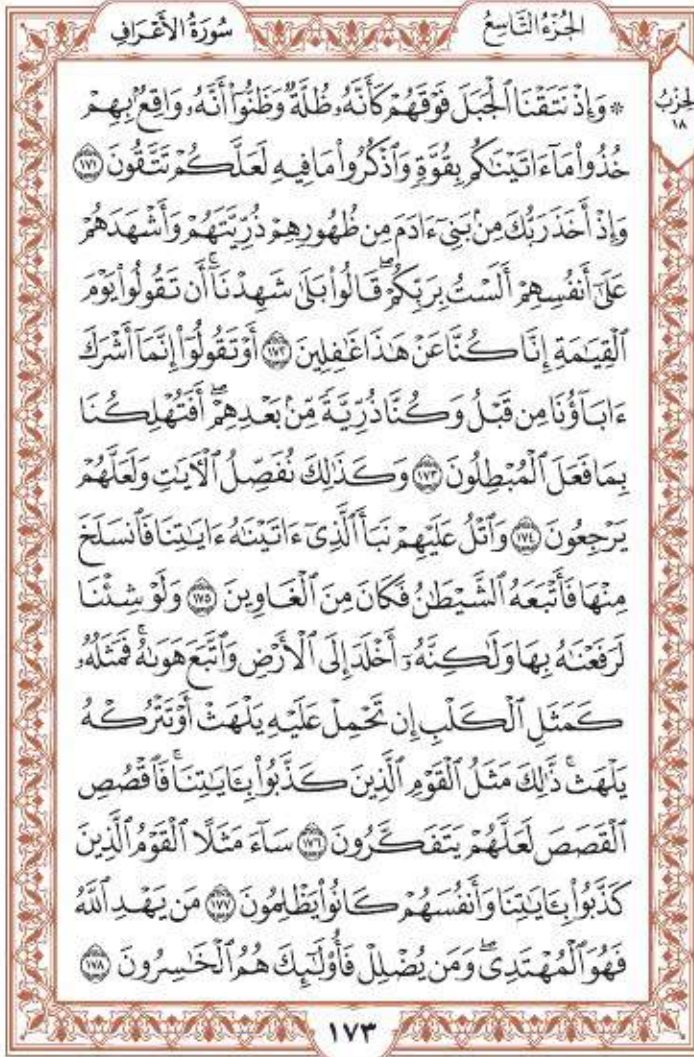 الجُزْءُ التَّاسِعُ
سُورَةُ الأَعْرَافِ
الحِزْبُ
١٨
۞ وَإِذْ نَتَقْنَا ٱلْجَبَلَ فَوْقَهُمْ كَأَنَّهُۥ ظُلَّةٌ وَظَنُّوٓا۟ أَنَّهُۥ وَاقِعٌۢ بِهِمْ
خُذُوا۟ مَآ ءَاتَيْنَـٰكُم بِقُوَّةٍ وَٱذْكُرُوا۟ مَا فِيهِ لَعَلَّكُمْ تَتَّقُونَ ١٧١
وَإِذْ أَخَذَ رَبُّكَ مِنۢ بَنِىٓ ءَادَمَ مِن ظُهُورِهِمْ ذُرِّيَّتَهُمْ وَأَشْهَدَهُمْ
عَلَىٰٓ أَنفُسِهِمْ أَلَسْتُ بِرَبِّكُمْ ۖ قَالُوا۟ بَلَىٰ شَهِدْنَآ ۛ أَن تَقُولُوا۟ يَوْمَ
ٱلْقِيَـٰمَةِ إِنَّا كُنَّا عَنْ هَـٰذَا غَـٰفِلِينَ ١٧٢ أَوْ تَقُولُوٓا۟ إِنَّمَآ أَشْرَكَ
ءَابَآؤُنَا مِن قَبْلُ وَكُنَّا ذُرِّيَّةً مِّنۢ بَعْدِهِمْ ۖ أَفَتُهْلِكُنَا
بِمَا فَعَلَ ٱلْمُبْطِلُونَ ١٧٣ وَكَذَٰلِكَ نُفَصِّلُ ٱلْـَٔايَـٰتِ وَلَعَلَّهُمْ
يَرْجِعُونَ ١٧٤ وَٱتْلُ عَلَيْهِمْ نَبَأَ ٱلَّذِىٓ ءَاتَيْنَـٰهُ ءَايَـٰتِنَا فَٱنسَلَخَ
مِنْهَا فَأَتْبَعَهُ ٱلشَّيْطَـٰنُ فَكَانَ مِنَ ٱلْغَاوِينَ ١٧٥ وَلَوْ شِئْنَا
لَرَفَعْنَـٰهُ بِهَا وَلَـٰكِنَّهُۥٓ أَخْلَدَ إِلَى ٱلْأَرْضِ وَٱتَّبَعَ هَوَىٰهُ ۚ فَمَثَلُهُۥ
كَمَثَلِ ٱلْكَلْبِ إِن تَحْمِلْ عَلَيْهِ يَلْهَثْ أَوْ تَتْرُكْهُ
يَلْهَث ۚ ذَّٰلِكَ مَثَلُ ٱلْقَوْمِ ٱلَّذِينَ كَذَّبُوا۟ بِـَٔايَـٰتِنَا ۚ فَٱقْصُصِ
ٱلْقَصَصَ لَعَلَّهُمْ يَتَفَكَّرُونَ ١٧٦ سَآءَ مَثَلًا ٱلْقَوْمُ ٱلَّذِينَ
كَذَّبُوا۟ بِـَٔايَـٰتِنَا وَأَنفُسَهُمْ كَانُوا۟ يَظْلِمُونَ ١٧٧ مَن يَهْدِ ٱللَّهُ
فَهُوَ ٱلْمُهْتَدِى ۖ وَمَن يُضْلِلْ فَأُو۟لَـٰٓئِكَ هُمُ ٱلْخَـٰسِرُونَ ١٧٨
١٧٣